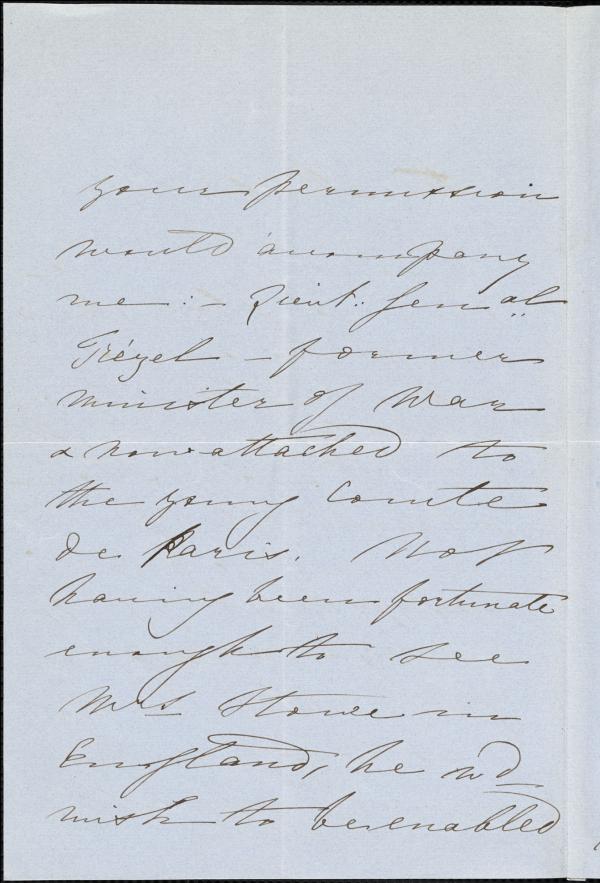 your permission
would accompany
me :- Lieut: Genal
Trézel - former
minister of War
& now attached to
the young Comte
de Paris. Not
having been fortunate
enough to see
Mrs Stowe in
England, he wd
wish to be enabled